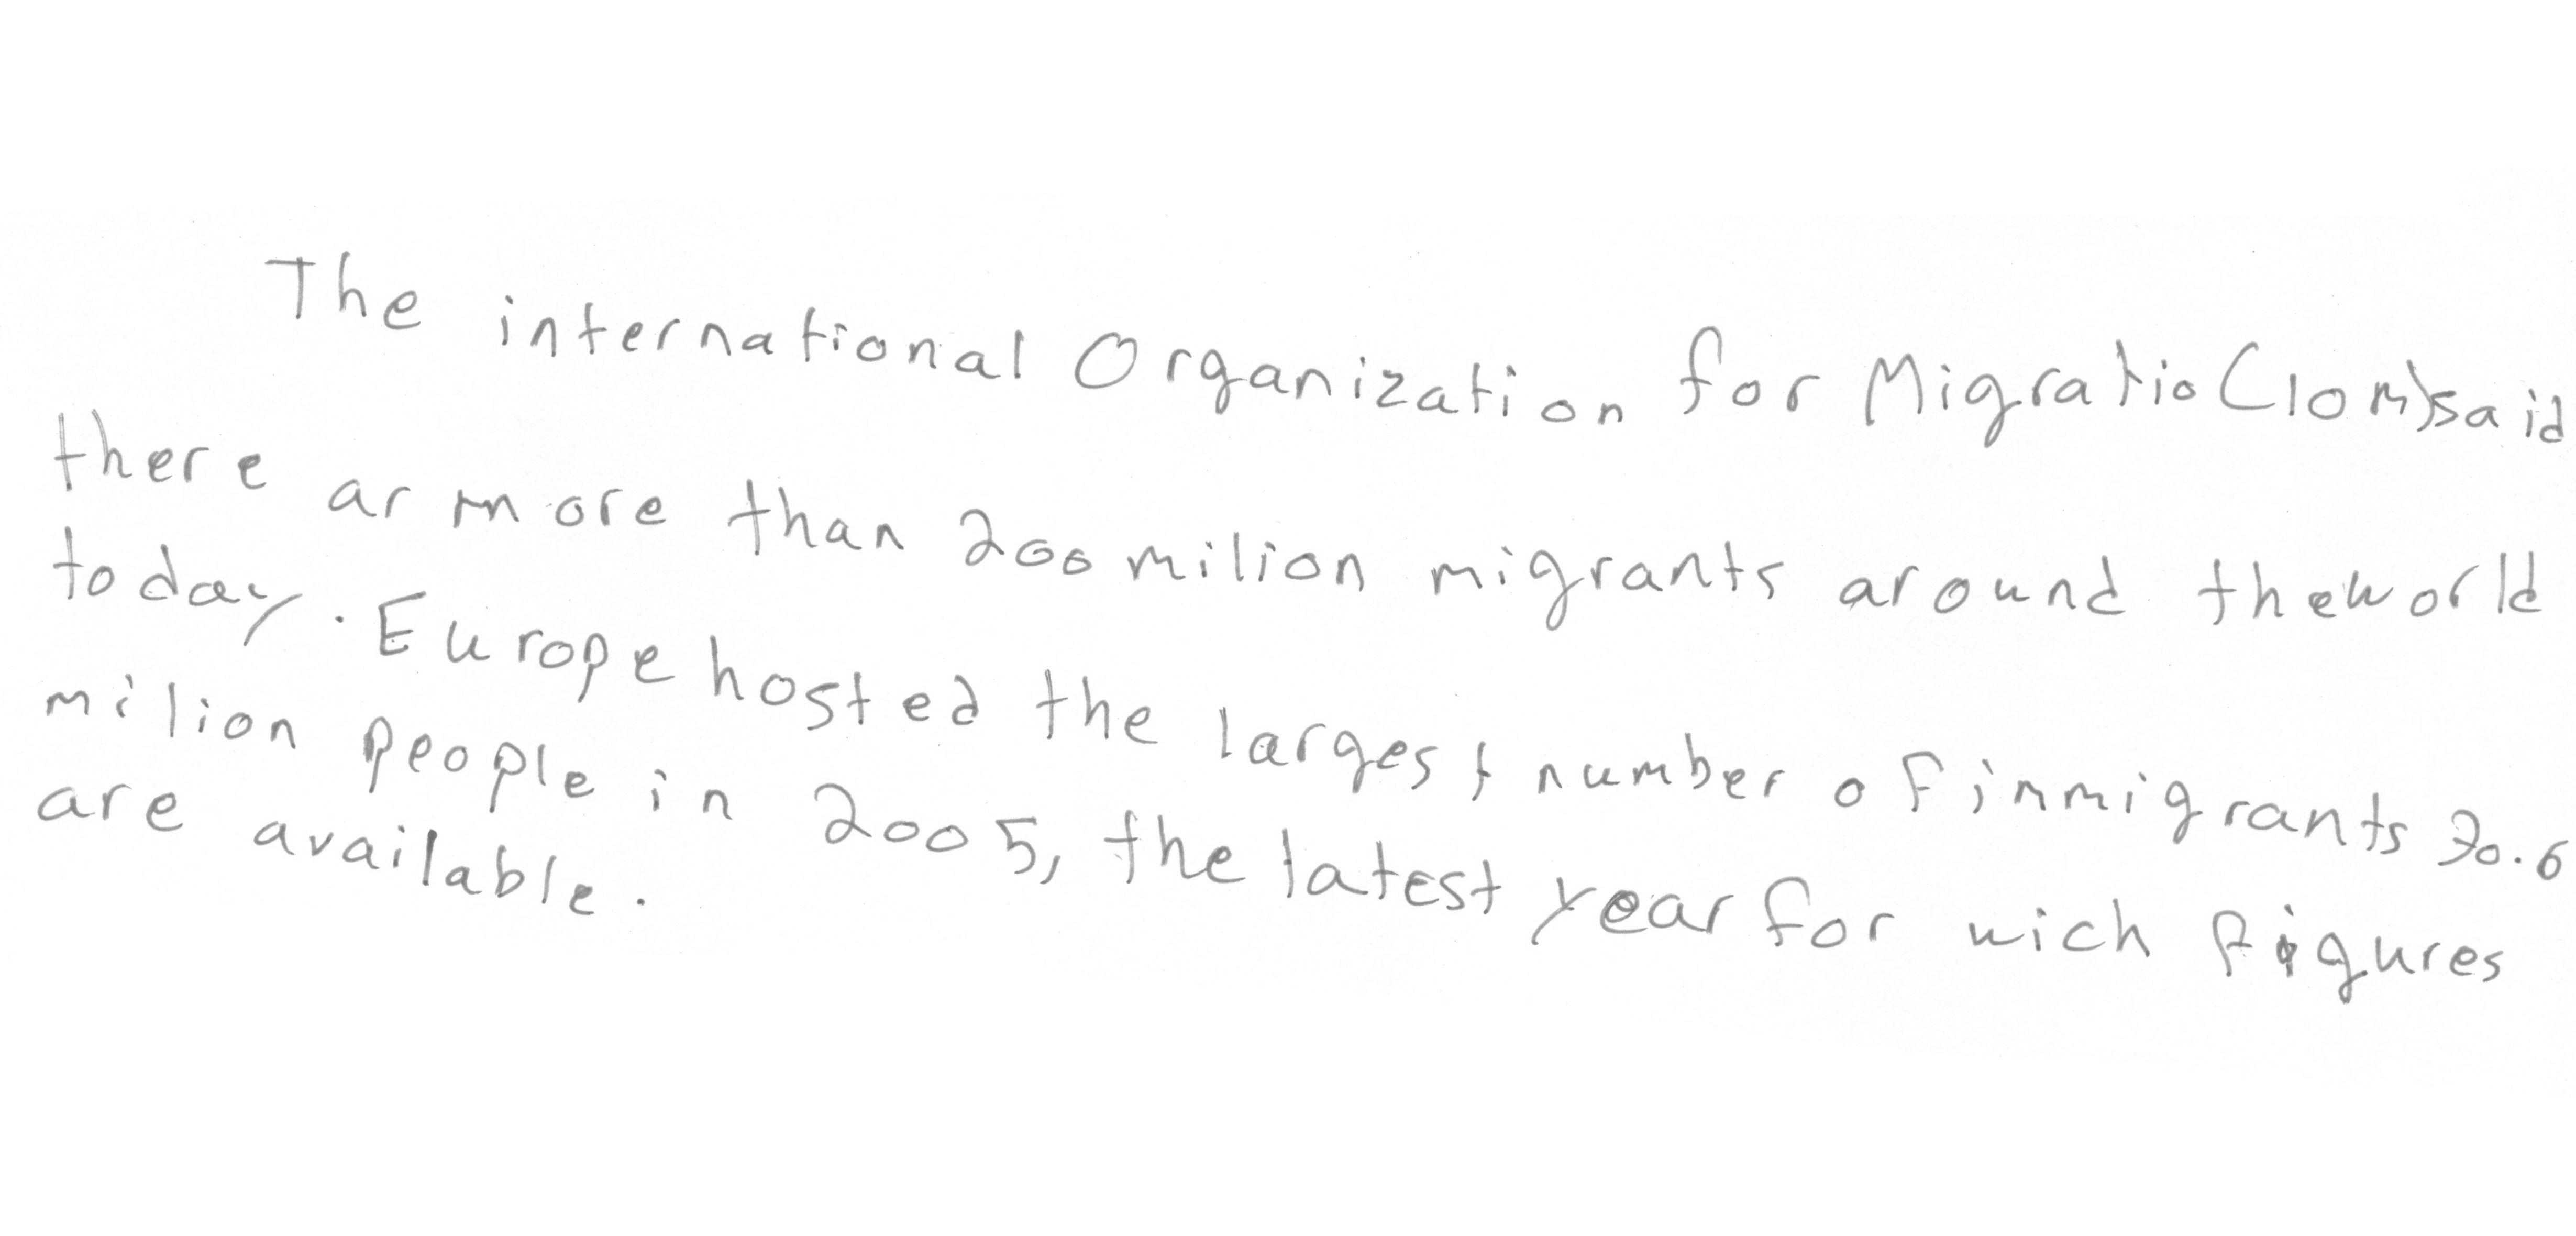 The international Organization for Migratio (IOM) said
there ar more than 200 milion migrants around the world
today. Europe hosted the largest number of inmigrants 70.6
milion people in 2005, the latest year for wich figures
are available.